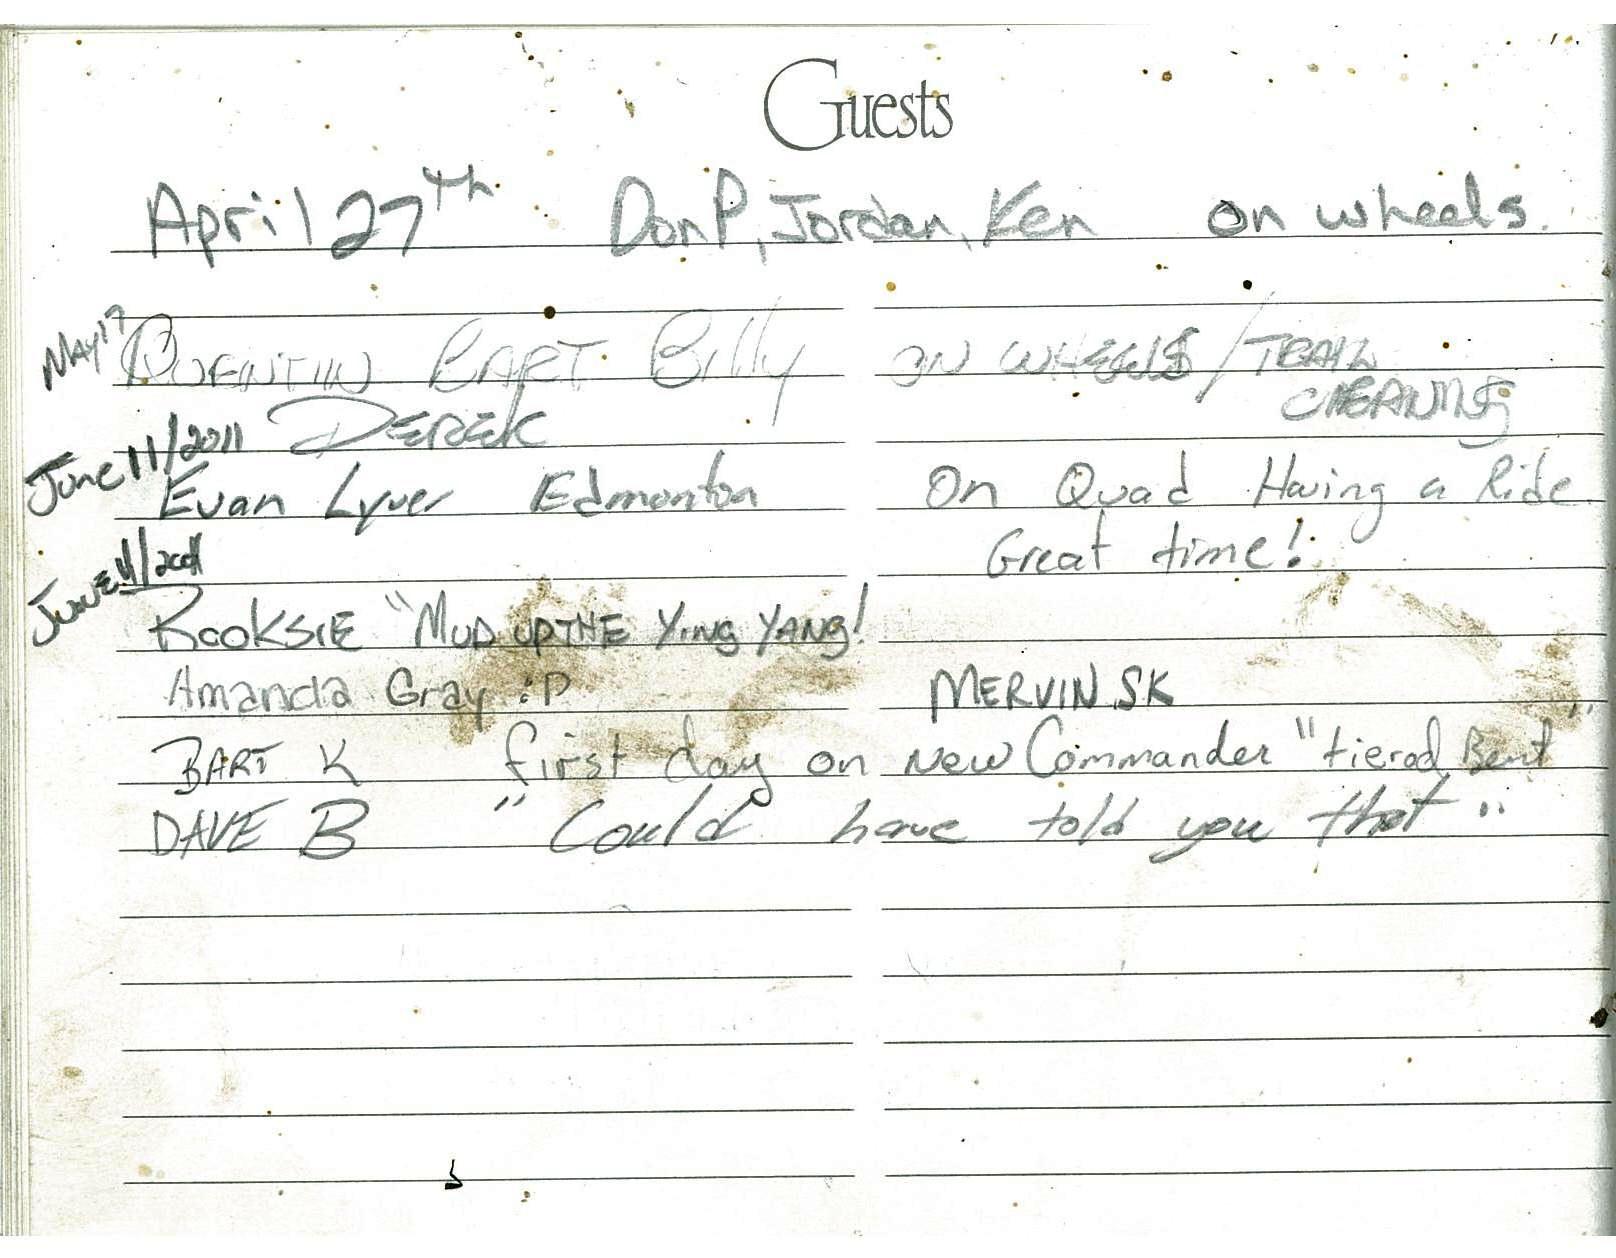 Guests
April 27th Don P, Jordan, Ken on wheels.
May 17 QUENTIN BART Billy ON WHEELS / TRAIL
CLEANING
DEREK
June 11/2011
Evan Lyver Edmonton On Quad Having a Ride
Great time!
JUNE 11/2011
ROOKSIE "MUD UP THE YING YANG!
Amanda Gray :P MERVIN SK
BART K first day on New Commander "tierod Bent"
DAVE B "Could have told you that"